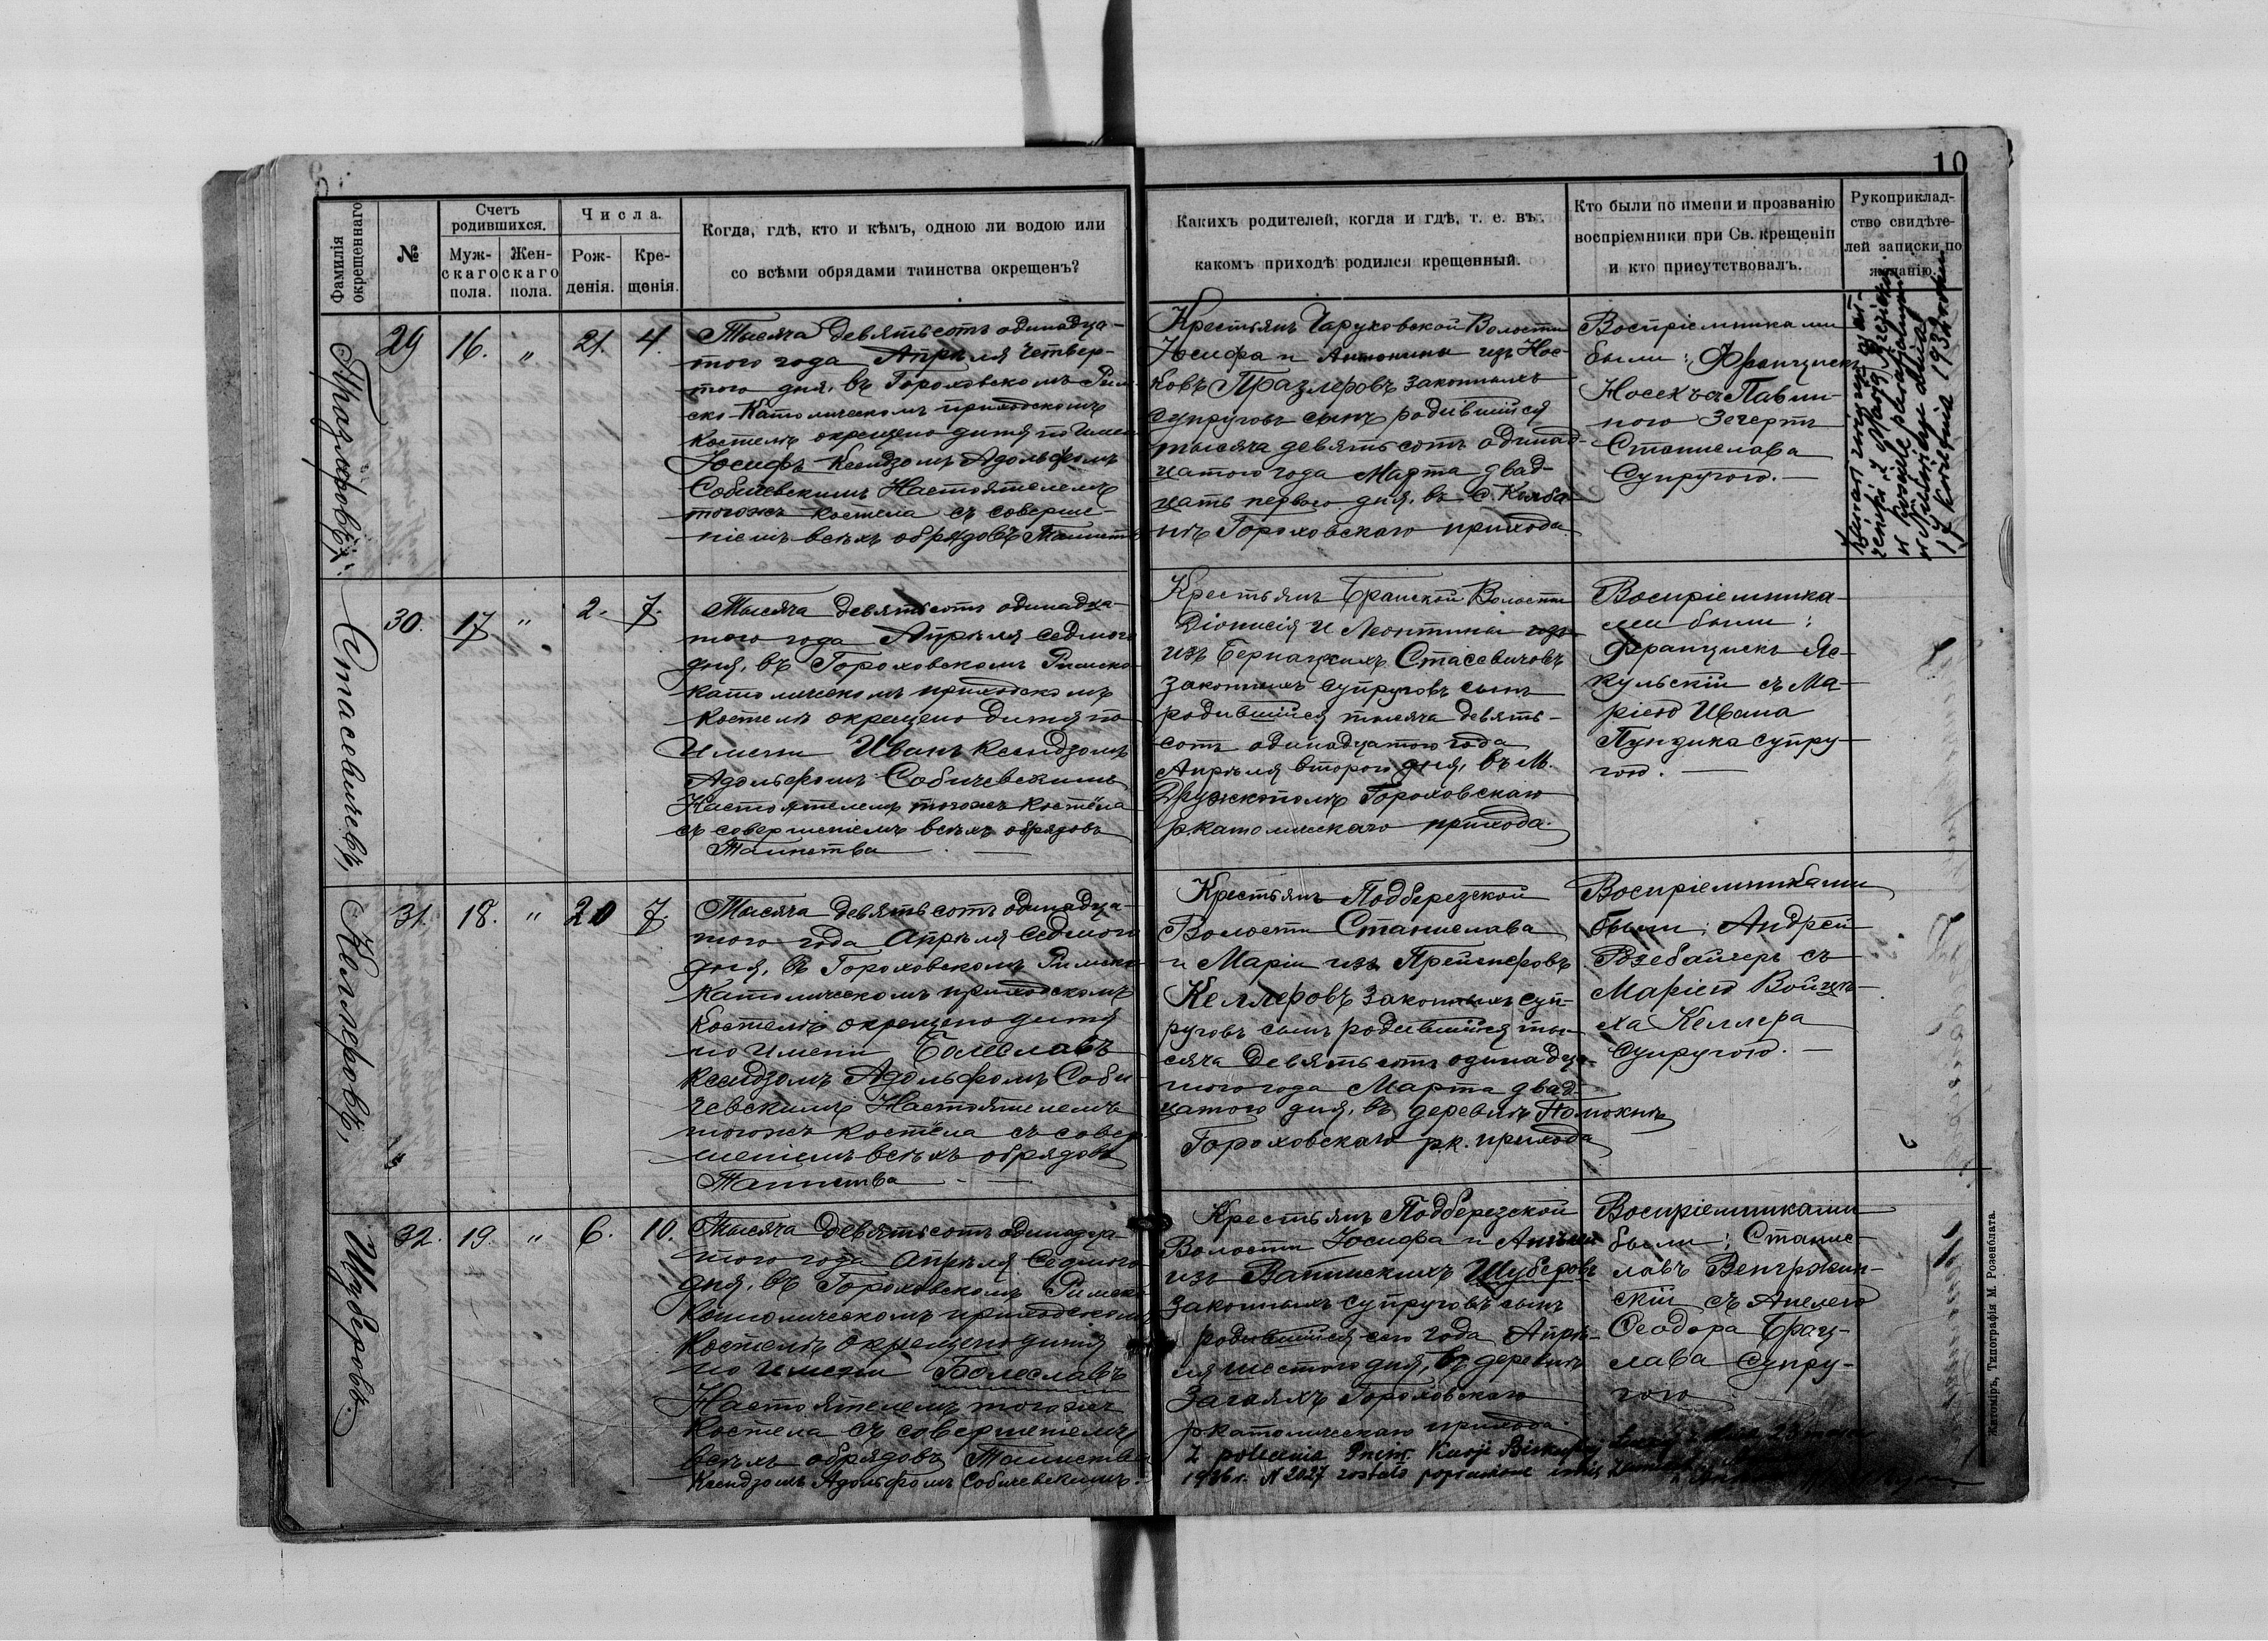 10
Фамилія окрещеннаго
№
Счетъ родившихся.
Мужскаго пола.
Женскаго пола.
Числа.
Рожденія.
Крещенія.
Когда, гдѣ, кто и кѣмъ, одною ли водою или
со всѣми обрядами таинства окрещенъ?
Какихъ родителей, когда и гдѣ, т. е. въ
какомъ приходѣ родился крещенный.
Кто были по имени и прозванію
воспріемники при Св. крещеніи
и кто присутствовалъ.
Рукоприклад-
ство свидѣте-
лей записки по
желанію.
29
16.
"
21.
4.
Тысяча девятьсотъ одинадца-
того года Апрѣля четвер-
того дня, въ Гороховскомъ Рим-
ско-Католическомъ приходскомъ
костелѣ окрещено дитя по имени
Іосифъ Ксендзомъ Адольфомъ
Собичевскимъ Настоятелемъ
тогожъ костела съ соверше-
ніемъ всѣхъ обрядовъ Таинств
Крестьянъ Чаруховской Волости
Іосифа и Антонины изъ Нос-
ковъ Празлеровъ законныхъ
супруговъ сынъ родившійся
тысяча девятьсотъ одинад-
цатого года Марта двад-
цать перваго дня, въ с. Колба-
нѣ Гороховскаго прихода
Воспріемниками
были: Францискъ
Носекъ съ Павли-
ною Зечертъ
Станислава
Супругою.
17 kwietnia 1932
Стасевичевъ,
30.
17
"
2.
7.
Тысяча девятьсотъ одинадца-
того года Апрѣля седмого
дня, въ Гороховскомъ Римско-
католическомъ приходскомъ
костелѣ окрещено дитя по
имени Иванъ Ксендзомъ
Адольфомъ Собичевскимъ
Настоятелемъ тогожъ костёла
съ совершеніемъ всѣхъ обрядовъ
Таинства
Крестьянъ Бранской Волости
Діонисія и Леонтины изъ
изъ Бернацкихъ Стасевичовъ
законныхъ супруговъ сынъ
родившійся тысяча девять-
сотъ одинадцатого года
Апрѣля второго дня, въ М.
Дружкополѣ Гороховскаго
ркатолическаго прихода.
Воспріемника-
ми были:
Францискъ Яс-
кульскій съ Ма-
ріею Ивана
Пундика супру-
гою.
Келлеровъ,
31.
18.
"
20
7.
Тысяча девятьсотъ одинадца-
того года Апрѣля Седмого
дня, въ Гороховскомъ Римско-
католическомъ приходскомъ
костелѣ окрещено дитя
по имени Болеславъ
Ксендзомъ Адольфомъ Соби-
чевскимъ Настоятелемъ
тогожъ костёла съ совер-
шеніемъ всѣхъ обрядовъ
Таинства
Крестьянъ Подберезской
Волости Станислава
и Маріи изъ Прейснеровъ
Келлеровъ законныхъ суп-
руговъ сынъ родившійся ты-
сяча девятьсотъ одинадца-
того года Марта двад-
цатого дня, въ деревнѣ
Гороховскаго рк. прихода
Воспріемниками
были: Андрей
Розебайгеръ съ
Маріею Войцѣ-
ха Келлера
Супругою.
Шуберовъ.
32.
19.
"
6.
10.
Тысяча девятьсотъ одинадца-
того года Апрѣля Седмого
дня, въ Гороховскомъ Римско
католическомъ приходскомъ
костелѣ окрещено дитя
по имени Болеславъ
Настоятелемъ тогожъ
костела съ совершеніемъ
всѣхъ обрядовъ Таинства
Ксендзомъ Адольфомъ Собичевскимъ.
Крестьянъ Подберезской
Волости Іосифа и
изъ Шуберовъ
законныхъ супруговъ сынъ
родившійся сего года Апрѣ-
ля шестого дня, въ деревнѣ
Загаяхъ Гороховскаго
ркатолическаго прихода.
Воспріемниками
были: Станис-
лавъ Венгржин-
скій съ Анелею
Ѳеодора Брац-
лава Супру-
гою
Z polecenia Kurji Biskupiej
1936 r. N 2027 zostało poprawione imię
Житоміръ, Типографія М. Розенблата.